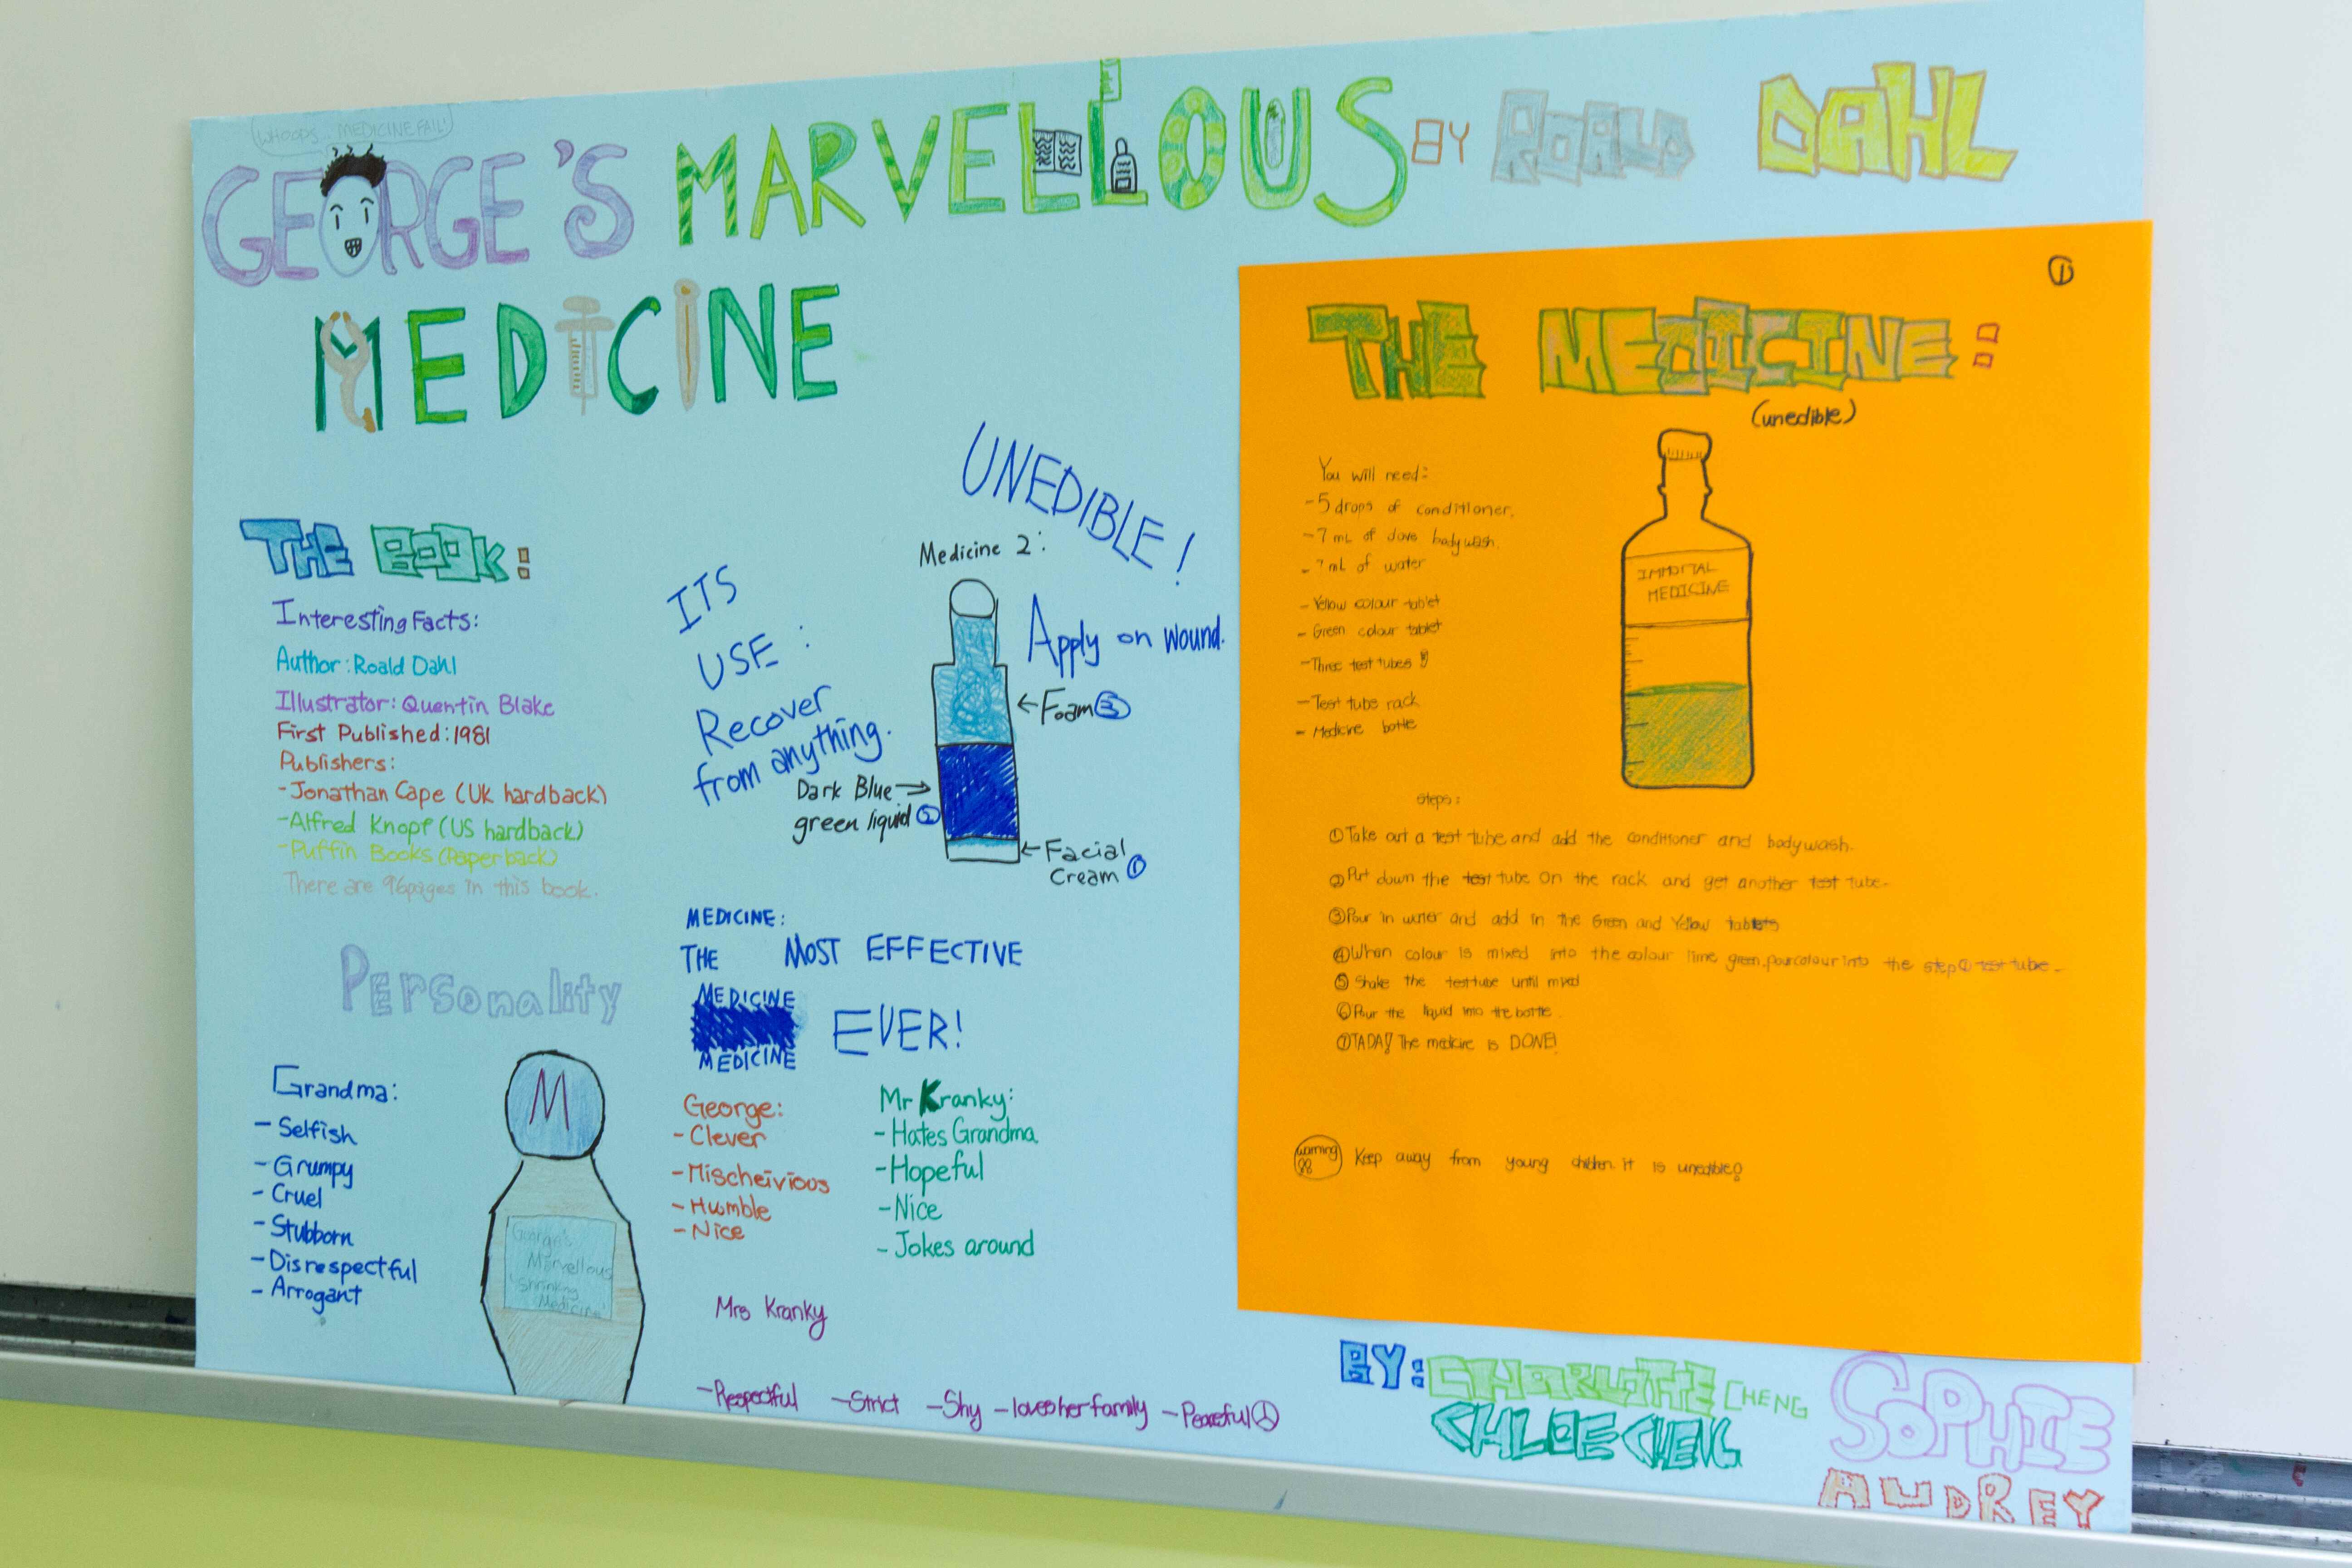 WHOOPS... MEDICINE FAIL!
GEORGE'S MARVELLOUS BY ROALD DAHL
MEDICINE
THE BOOK:
Interesting Facts:
Author: Roald Dahl
Illustrator: Quentin Blake
First Published: 1981
Publishers:
- Jonathan Cape (UK hardback)
- Alfred Knopf (US hardback)
- Puffin Books (Paperback)
There are 96 pages in this book.
ITS
USE:
Recover
from anything.
UNEDIBLE!
Medicine 2:
Apply on wound.
← Foam ③
Dark Blue →
green liquid ②
← Facial
Cream ①
MEDICINE:
THE MOST EFFECTIVE
MEDICINE
EVER!
MEDICINE
Personality
Grandma:
- Selfish
- Grumpy
- Cruel
- Stubborn
- Disrespectful
- Arrogant
M
George's
Marvellous
Shrinking
Medicine
George:
- Clever
- Mischeivious
- Humble
- Nice
Mr Kranky:
- Hates Grandma
- Hopeful
- Nice
- Jokes around
Mrs Kranky
- Respectful - Strict - Shy - loves her family - Peaceful
①
THE MEDICINE:
(unedible)
You will need:
- 5 drops of conditioner.
- 7 mL of dove body wash.
- 7 mL of water
- Yellow colour tablet
- Green colour tablet
- Three test tubes
- Test tube rack
- Medicine bottle
IMMORTAL
MEDICINE
Steps:
① Take out a test tube and add the conditioner and bodywash.
② Put down the test tube on the rack and get another test tube.
③ Pour in water and add in the Green and Yellow tablets
④ When colour is mixed into the colour lime green, pour colour into the step ① test tube.
⑤ Shake the test tube until mixed
⑥ Pour the liquid into the bottle.
⑦ TADA! The medicine is DONE!
warning!! Keep away from young children it is unedible!
BY: CHARLOTTE CHENG
CHLOE CHEN
SOPHIE
AUDREY